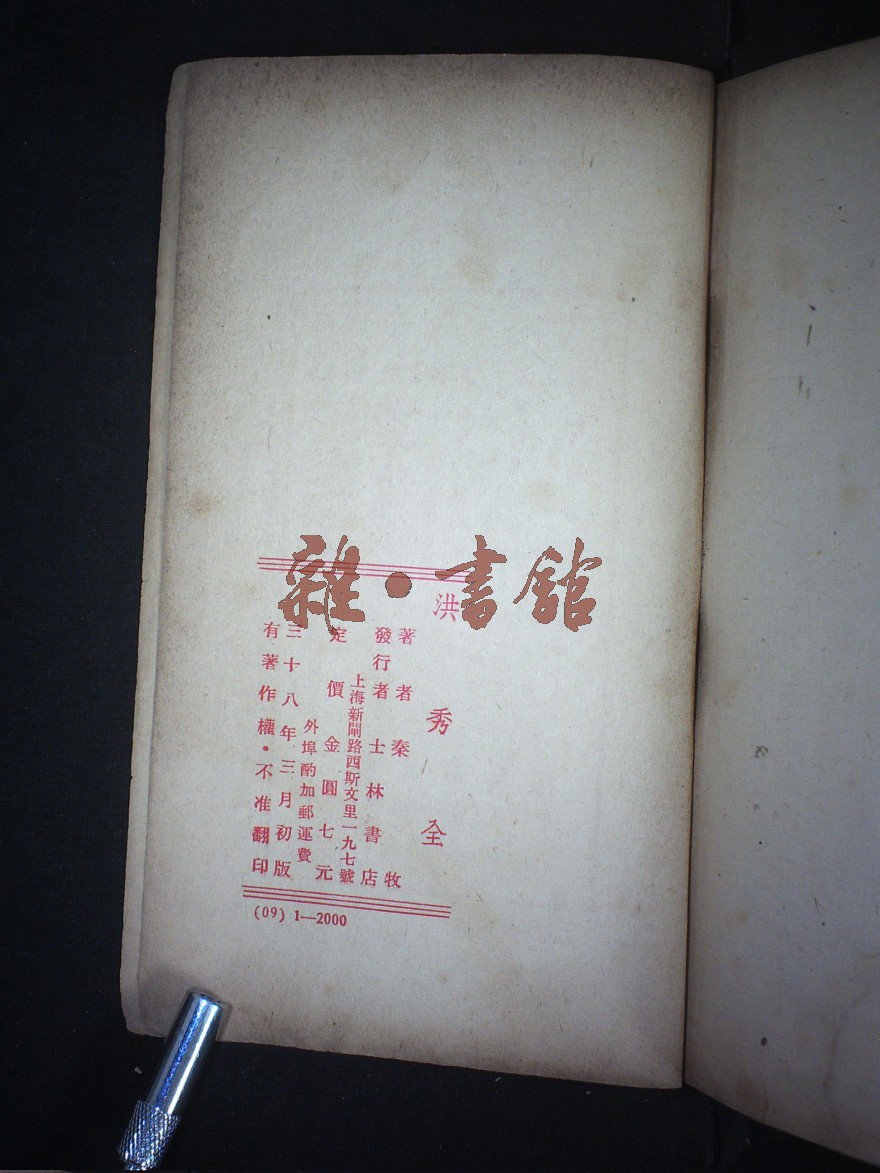 洪秀全
著者秦牧
發行者士林書店
上海新閘路西斯文里一九七號
定價金圓七元
外埠酌加郵運費
三十八年三月初版
有著作權・不准翻印
(09) 1—2000
雜・書館